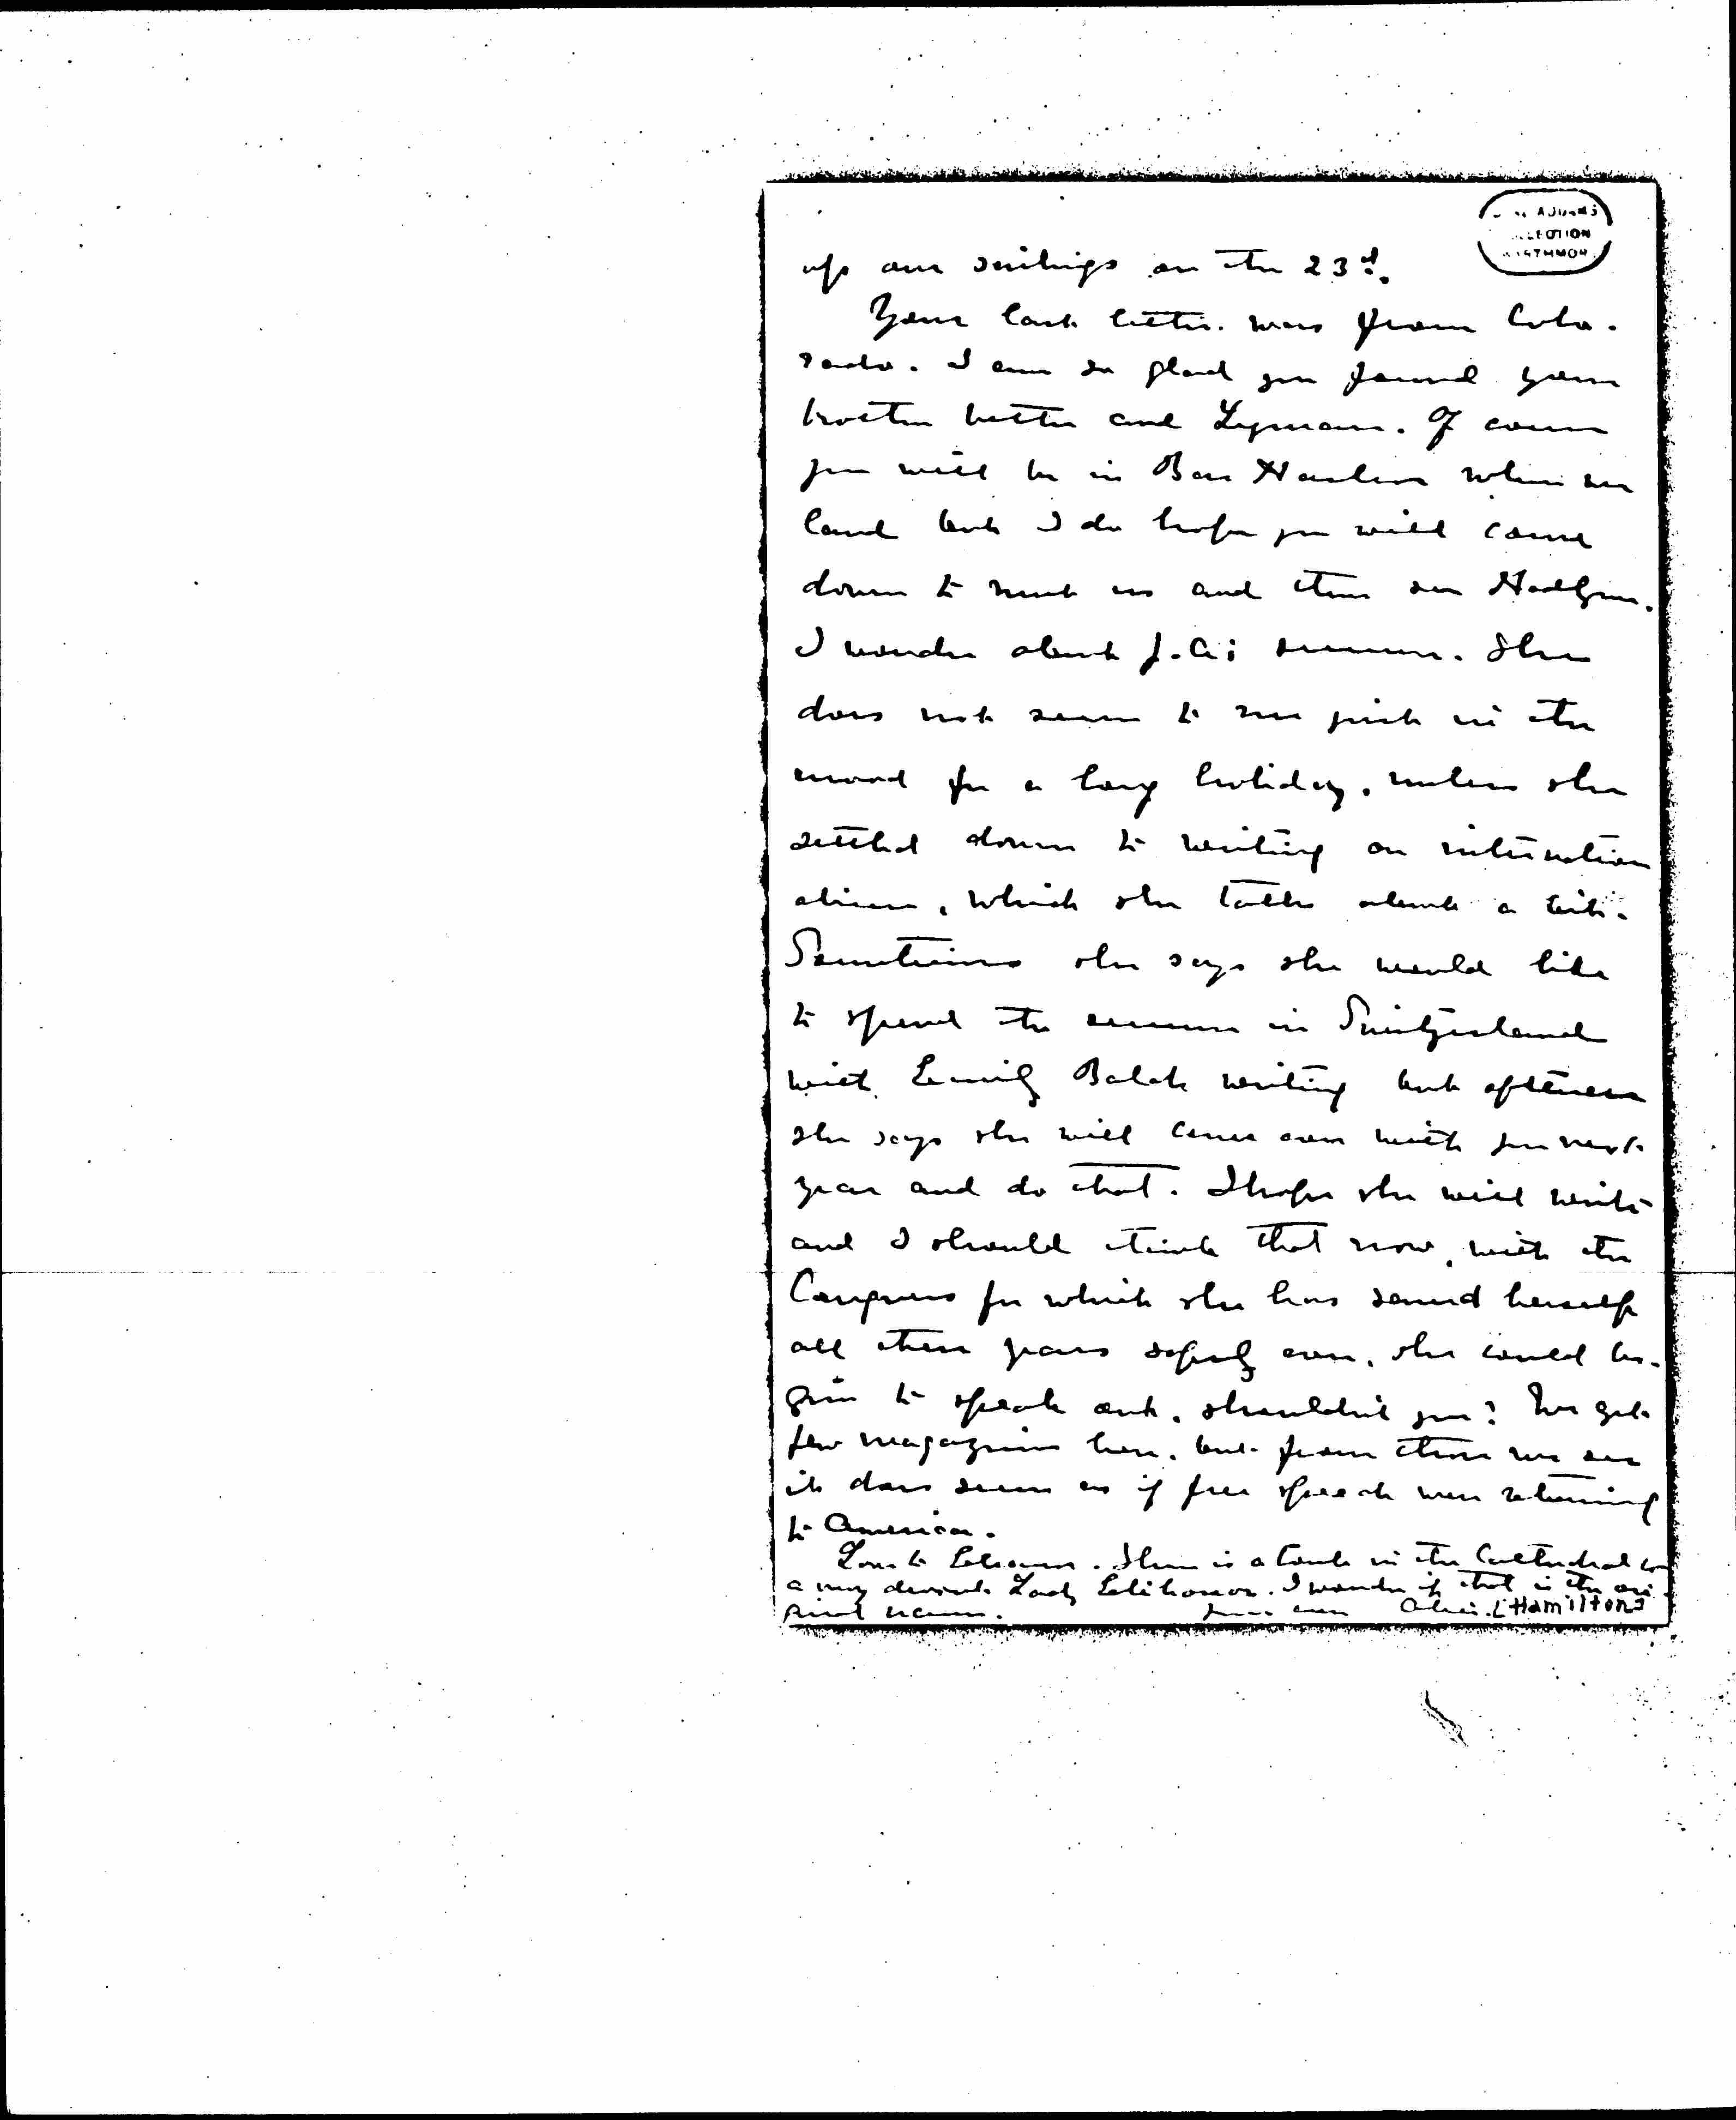 ADDAMS
LECTION
RTHMOR
up our sailings on the 23d.
Your last letter was from Colo-
rado. I am so glad you found your
brother better and Lyman. Of course
you will be in Bar Harbor when we
land but I do hope you will come
down to meet us and then see Hadlyme.
I wonder about J.A.'s summer. She
does not seem to me quite in the
mood for a long holiday, unless she
settled down to writing on internation
alism, which she talks about a bit.
Sometimes she says she would like
to spend the summer in Switzerland
with Emily Balch writing but oftener
she says she will come over with you next
year and do that. I hope she will write
and I should think that now, with the
Congress for which she has saved herself
all these years safely over, she could be-
gin to speak out, shouldn't you? We get
few magazines here, but from those we see
it does seem as if free speech were returning
to America.
Love to . There is a tomb in the Cathedral to
a very devout Lady . I wonder if that is the ori-
ginal name. Alice [Hamilton]